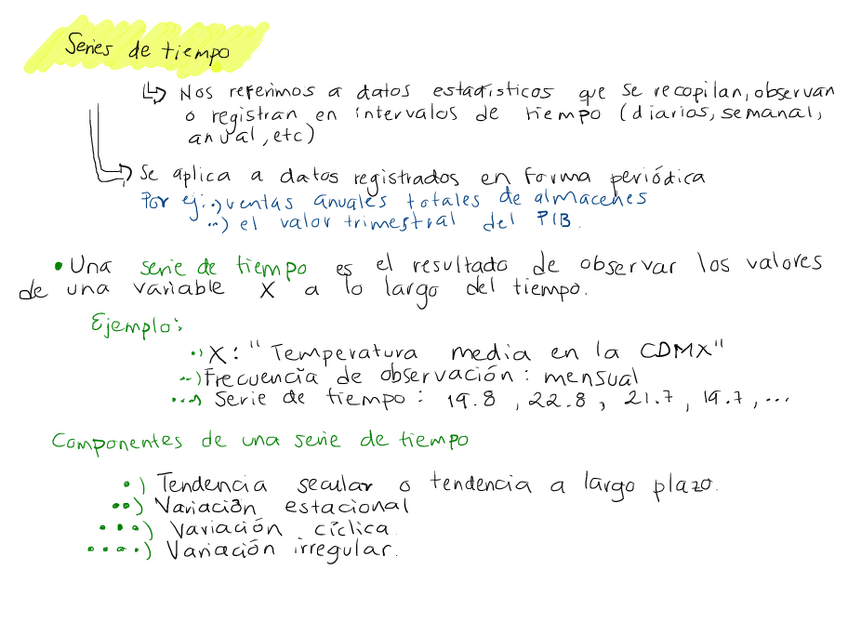 Series de tiempo
↳ Nos referimos a datos estadísticos que se recopilan, observan
o registran en intervalos de tiempo (diarios, semanal,
anual, etc)
Se aplica a datos registrados en forma periódica
Por ej: •) ventas anuales totales de almacenes
••) el valor trimestral del PIB.
• Una serie de tiempo es el resultado de observar los valores
de una variable X a lo largo del tiempo.
Ejemplo:
•) X: "Temperatura media en la CDMX"
••) Frecuencia de observación: mensual
•••) Serie de tiempo: 19.8, 22.8, 21.7, 19.7, ...
Componentes de una serie de tiempo
•) Tendencia secular o tendencia a largo plazo.
••) Variación estacional
•••) Variación cíclica.
••••) Variación irregular.